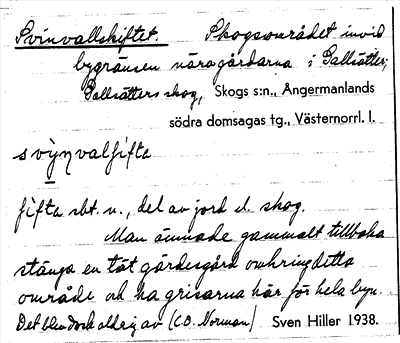 Svinvallskiftet. Skogsområdet invid
bygränsen nära gårdarna i Sallsätter,
Sallsätters skog, Skogs s:n., Ångermanlands
södra domsagas tg., Västernorrl. l.
svinvalʃifta
ʃifta sbt. n., del av jord el. skog.
Man ämnade gammalt tillbaka
stänga en tät gärdesgård omkring detta
område och ha grisarna här för hela byn.
Det blev dock aldrig av (C.O. Norman) Sven Hiller 1938.